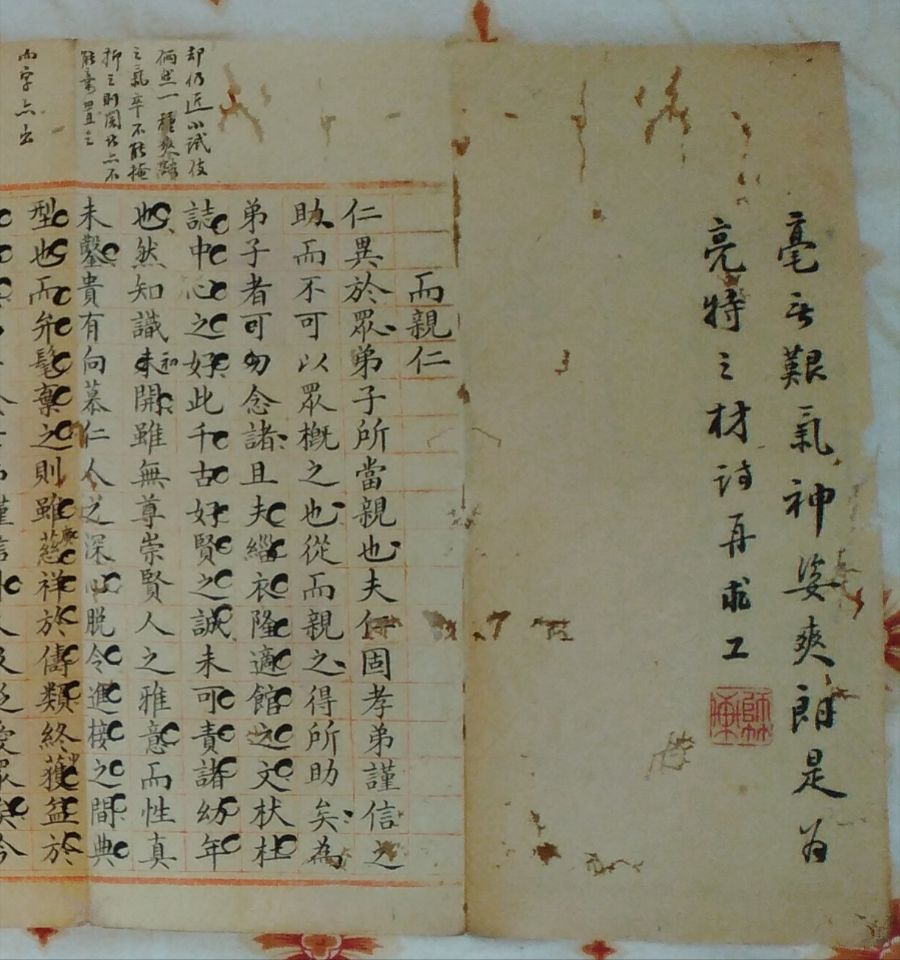 毫无艱氣神姿爽朗是为
亮特之材詩再求工
而親仁
仁異於眾弟子所當親也夫仁固孝弟謹信之
助而不可以眾概之也從而親之得所助矣為
弟子者可勿念諸且夫緇衣隆適館之文杕杜
誌中心之好此千古好賢之誠未可責諸幼年
也然知識未開雖無尊崇賢人之雅意而性真
初
未鑿貴有向慕仁人之深心脫令進接之間典
型也而弁髦棄之則雖慈祥於儔類終獲益於
謹信 人 泛愛眾矣今
却仍近小试伎
俩然一種爽豁
之氣卒不能掩
抑之則閱 不
能棄置之
两字点出